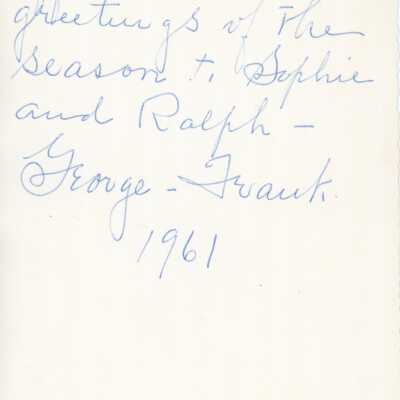 greetings of the
season to Sophie
and Ralph -
George - Frank.
1961